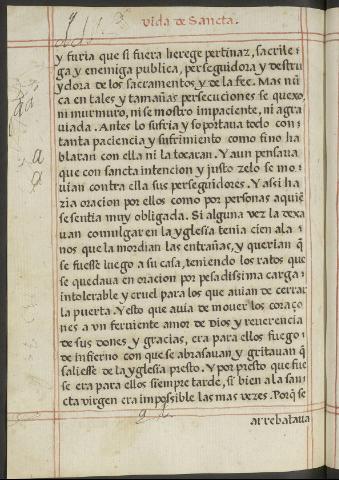 Vida de Sancta.
y furia que si fuera herege pertinaz, sacrile-
ga y enemiga publica, perseguidora y destru
ydora de los sacramentos y de la fee. Mas nũ
ca en tales y tamañas persecuciones se quexo,
ni murmuro, ni se mostro impaciente, ni agra
uiada. Antes lo sufria y soportaua todo con
tanta paciencia y sufrimiento como sino ha
blaran con ella ni la tocaran. Y aun pensaua
que con sancta intencion y justo zelo se mo-
uian contra ella sus perseguidores. Y assi ha
zia oracion por ellos como por personas aquiẽ
se sentia muy obligada. Si alguna vez la dexa
uan comulgar en la yglesia tenia cien ala-
nos que la mordian las entrañas, y querian q̃
se fuesse luego a su casa, teniendo los ratos que
se quedaua en oracion por pesadissima carga
intolerable y cruel para los que auian de cerrar
la puerta. Y esto que auia de mouer los coraço
nes a vn feruiente amor de Dios y reuerencia
de sus dones y gracias, era para ellos fuego
de infierno con que se abrasauan y gritauan q̃
saliesse de la yglesia presto. Y por presto que fue
se era para ellos siempre tarde, si bien a la san
cta virgen era impossible las mas vezes. Porq̃ se
arrebataua